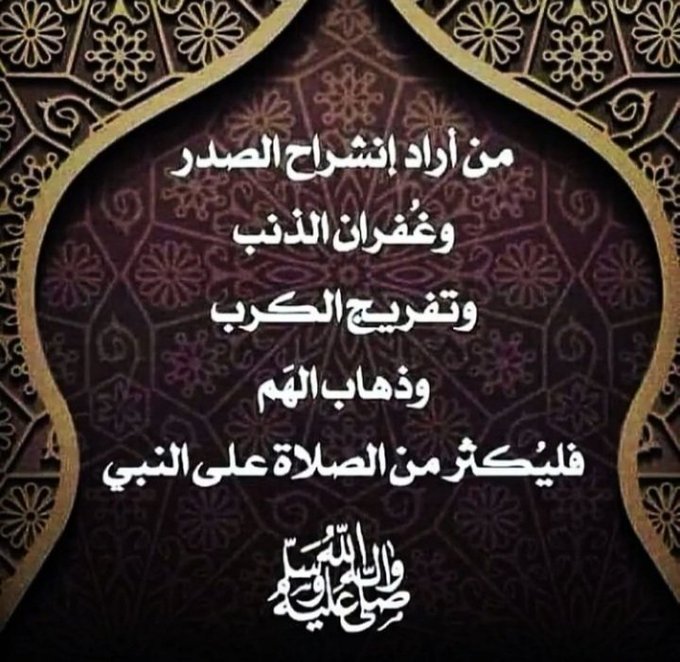 من أراد إنشراح الصدر
وغُفران الذنب
وتفريج الكرب
وذهاب الهَم
فليُكثر من الصلاة على النبي
صلى الله عليه وآله وسلم